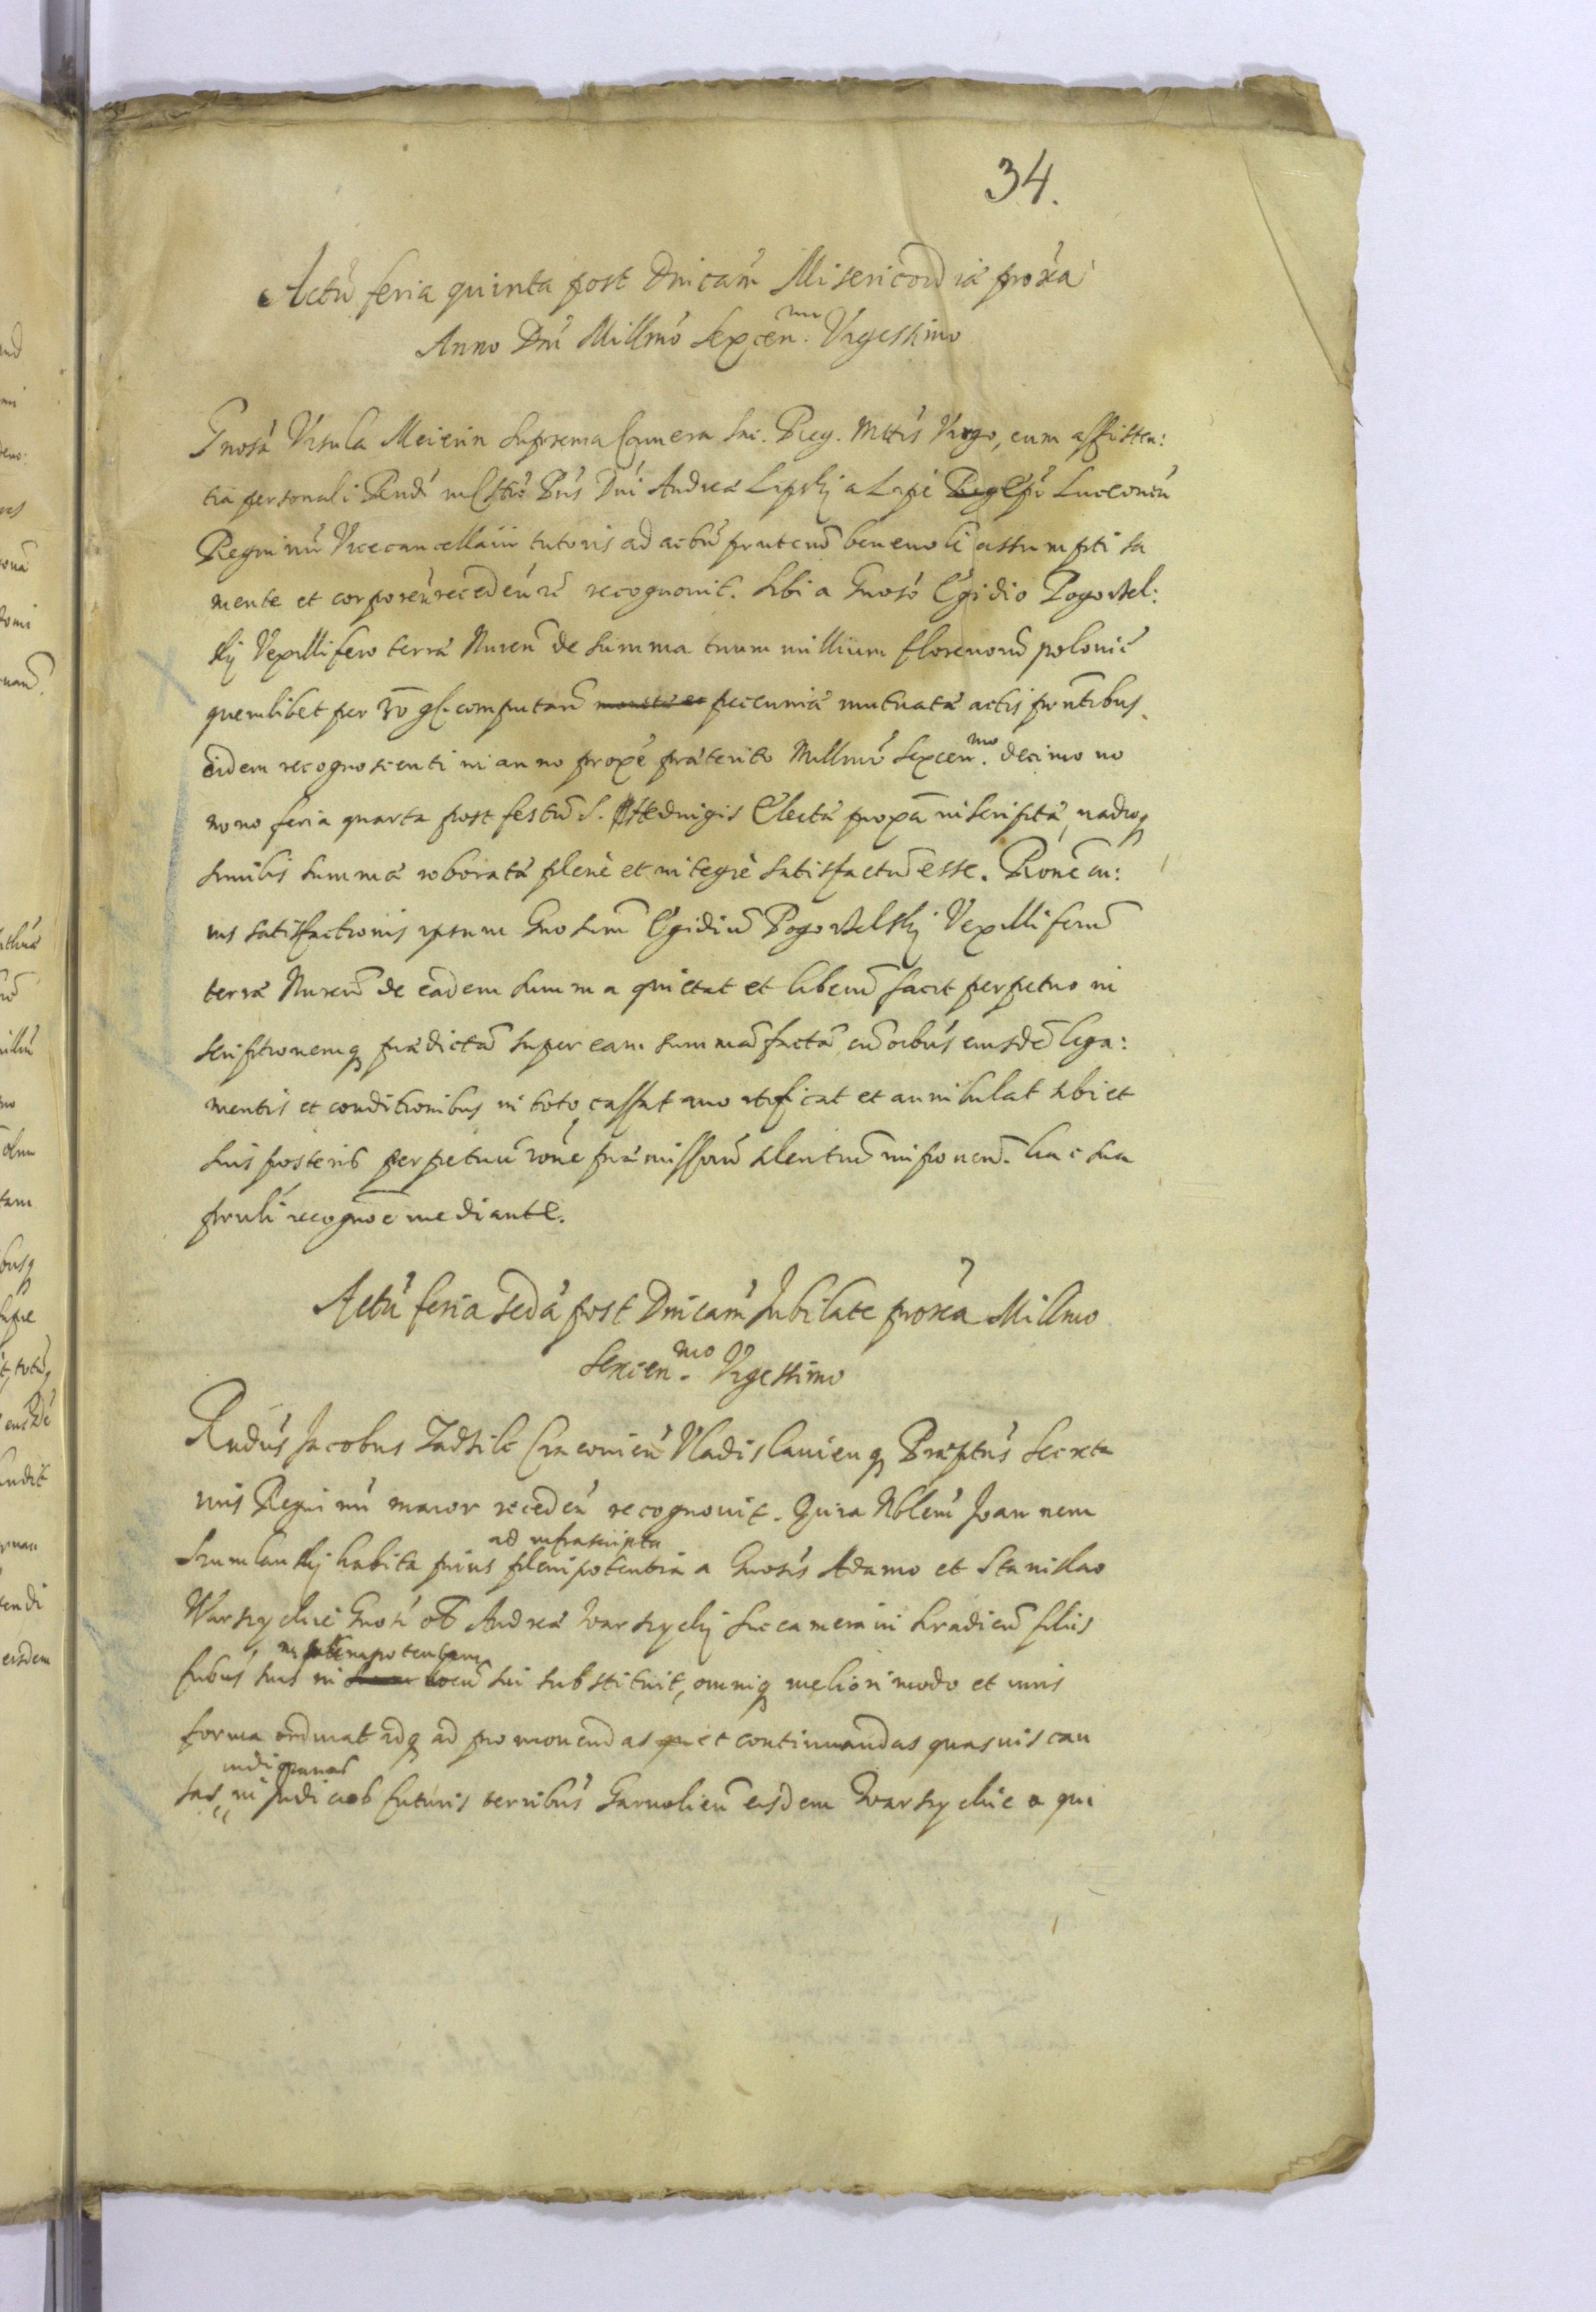 34.
Actū feria quinta post Dnicam̄ Misericordia proxa
Anno Dni Millmo Sexcen.mo Vigessimo
Gnosa Vrsula Meierin Suprema Camera Sac. Reg. Mttis Virgo, cum assisten:
tia personali Rendi in Chro Pris Dni Andrea Lipsky a Lipe Epi Luceorien
Regni nri Vicecancellarii tutoris ad actu prntem benevole assumpti sa
mente et corpore recedeń recognovit. Sibi a Gnoso Egidio Pogorzel:
sky Vexillifero terra Nuren de summa trium millium florenorū polonic
quemlibet per 30 gl. computan pecunia mutuata actis prntibus
eidem recognoscenti in anno proxe praterito Millmo Sexcen.mo decimo no
nono feria quarta post festū S. Hedvigis Electa proxa inscripta, vadioq
similis summa roborata plene et integre satisfactū esse. Rone cu:
ius satisfactionis ipsum Gnosum Egidiū Pogorzelsky Vexilliferū
terra Nuren de eadem summa quietat et liberū facit perpetuo in
scriptionemq pradictā super eam summā factā cū oibus eiusdē liga:
mentis et conditionibus in toto cassat mortificat et annihilat sibi et
suis posteris perpetuū rone pramissorū silentiū imponen. hac sua
prnti recognoe mediante.
Actū feria secda post Dnicam Jubilate proxa Millmo
Sexcen.mo Vigessimo
Rndus Jacobus Zadzik Cracovien Vladislavienq Praeptus Secreta
rius Regni nri maior receden recognovit. Quia Nblem Joannem
Szumlansky habita prius ad infrascripta plenipotentia a Gnosis Adamo et Stanislao
Warszyckie Gnosi olb Andrea Warszycky Succamerarii Sradien filiis
frībus suis in plenipotentem in locū sui substituit, omniq meliori modo et iuris
forma ordinat idq ad promovendas et continuandas quasvis cau
sas, in Judiciis futuris terribus Garvolien eisdem Warszyckie a qui